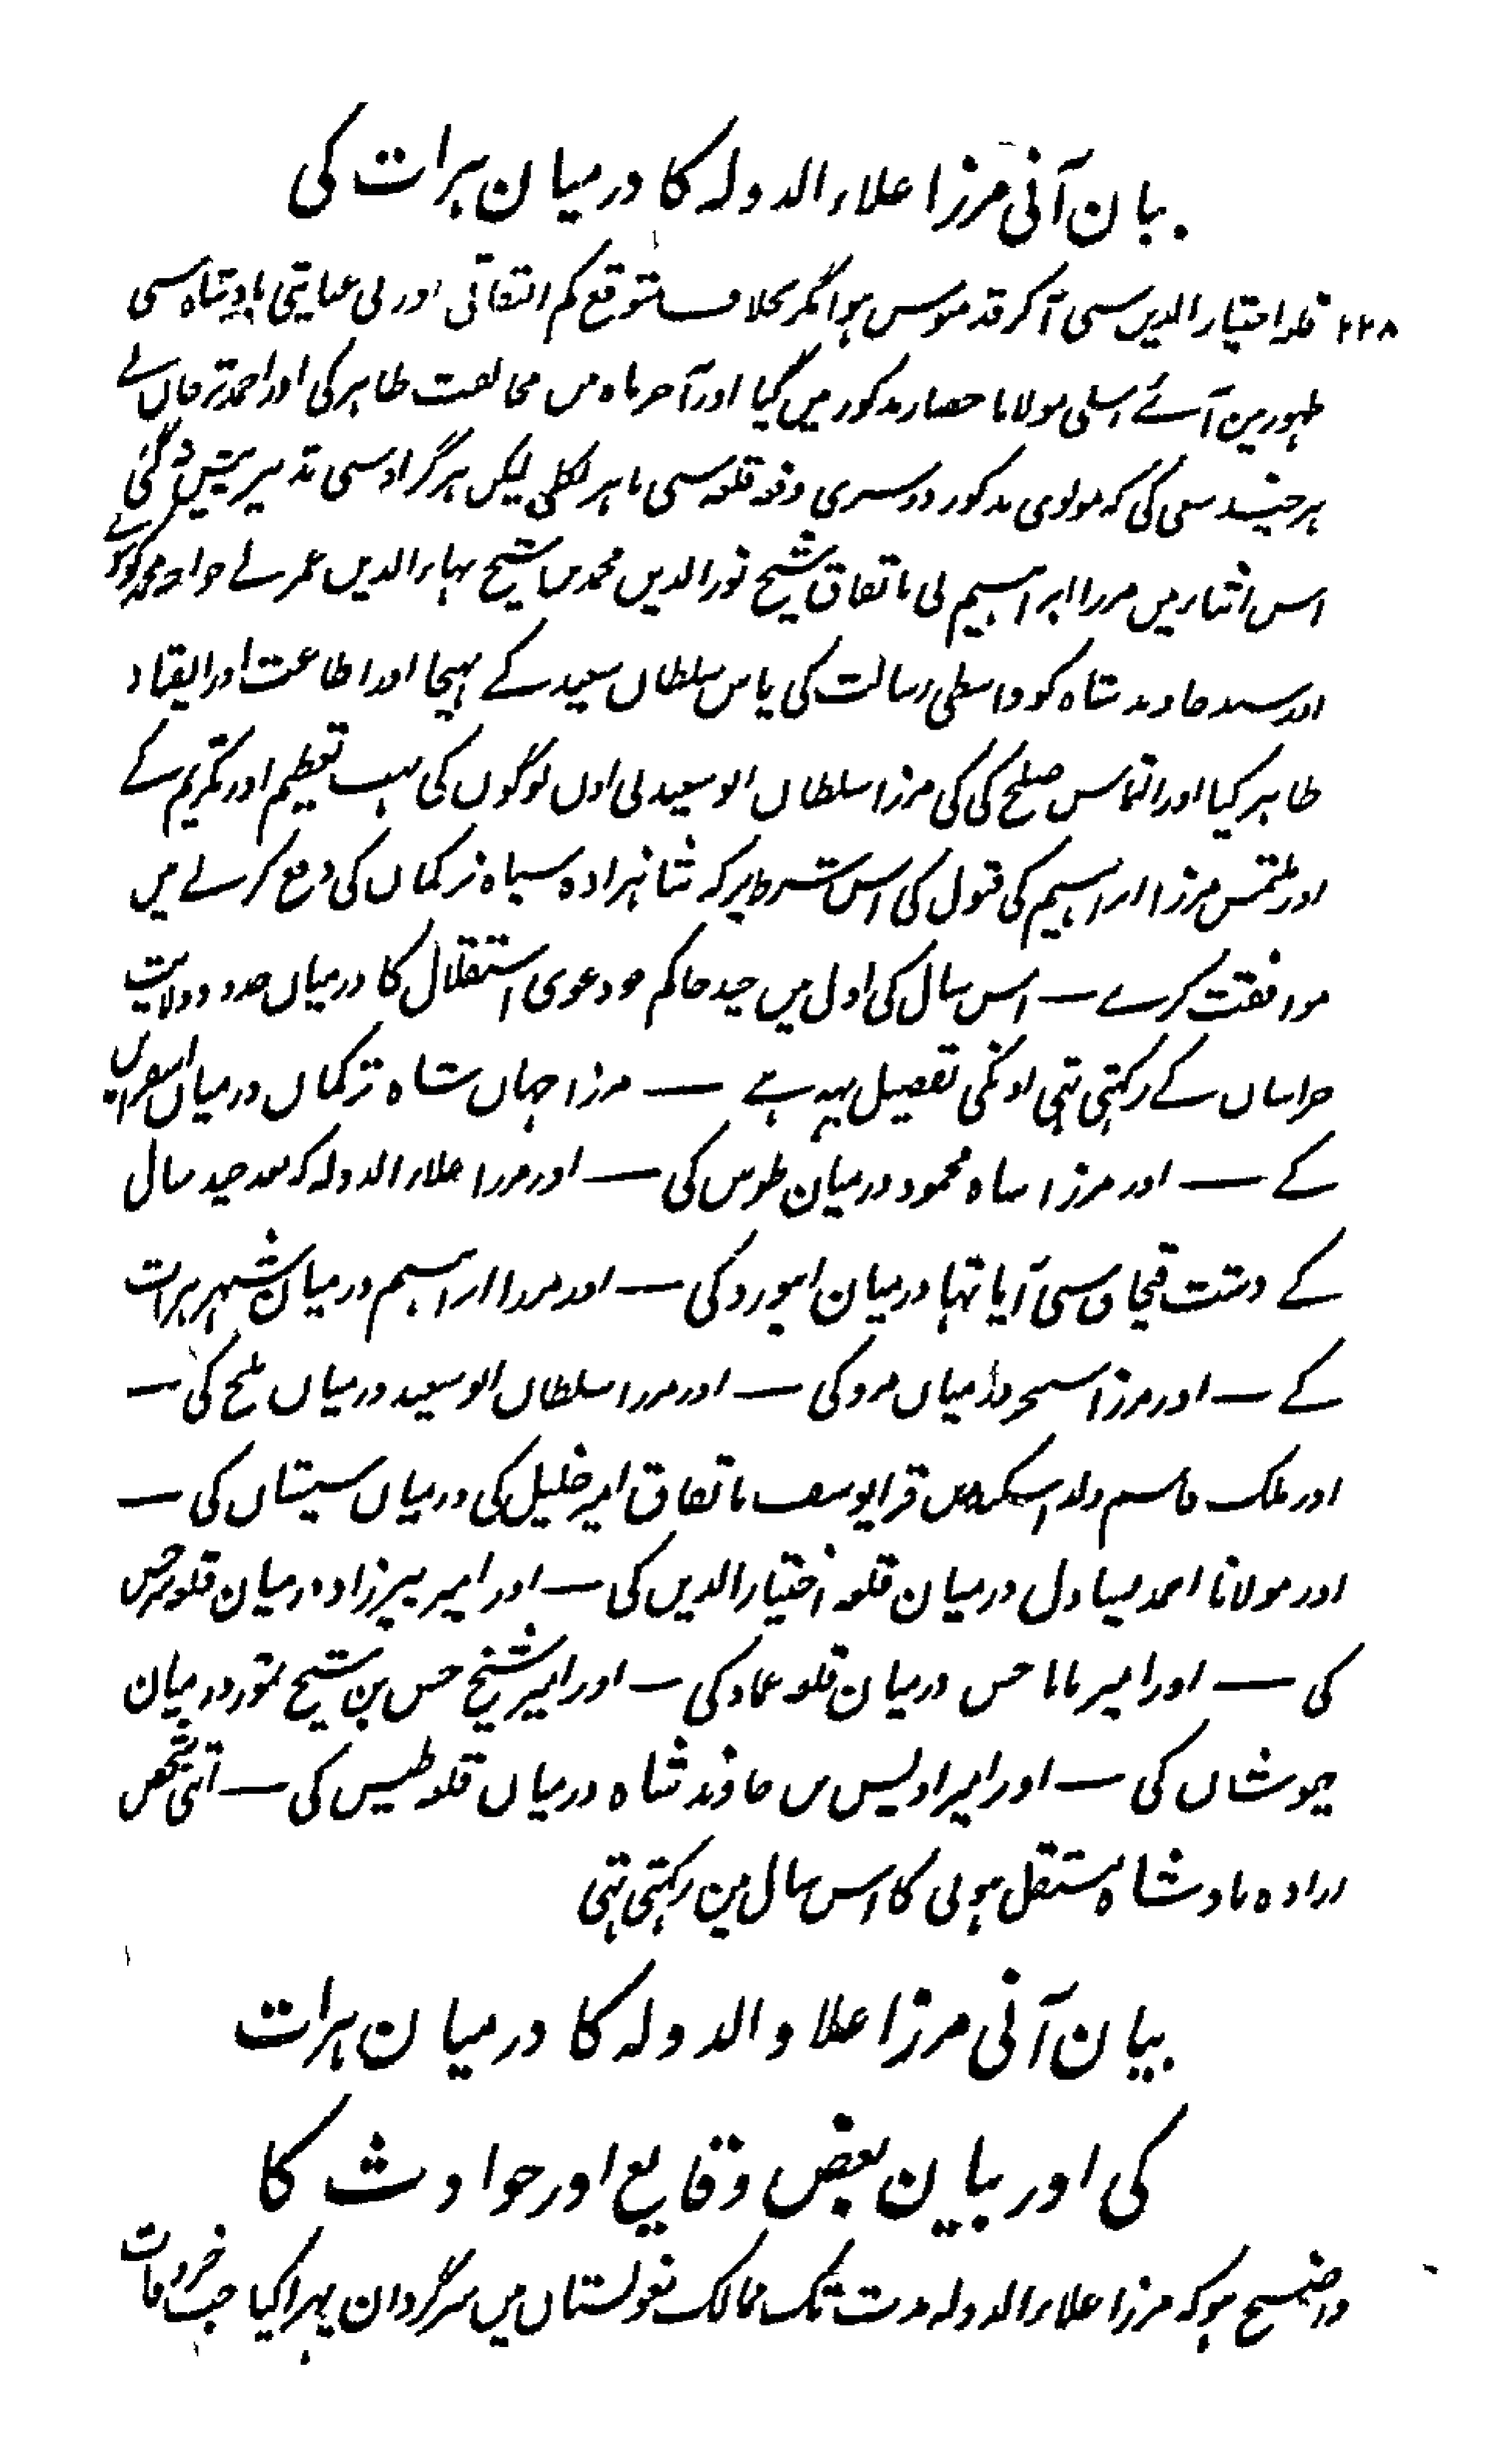 بیان آنی مرزا علاء الدولہ کا درمیان ہرات کی
۲۲۸ قلعہ اختیار الدین سی آکر قدموس ہوا مگر بخلاف توقع کم التفاتی اور بی عنایتی بادشاہ سی
ظہورین آئے اسلی مولانا حصار مذکور میں گیا اور آخر ماہ میں مخالفت ظاہر کی اور احمد ترخان نے
ہر چند سعی کی کہ مولوی مذکور دوسری دفعہ قلعہ سی باہر نکلی لیکن ہرگز اوسی تدبیر پیش نہ گئی
اس اثناء میں مرزا ابراہیم نی باتفاق شیخ نور الدین محمد بن شیخ بہاء الدین عمر نے خواجہ محمد
اور سید خاوند شاہ کو واسطی رسالت کی پاس سلطان سعید کے بہیجا اور اطاعت اور انقیاد
ظاہر کیا اور التماس صلح کی کی مرزا سلطان ابو سعید نی اون لوگوں کی بہت تعظیم اور تکریم کے
اور ملتمس مرزا ابراہیم کی قبول کی اس شرط پر کہ شاہزادہ سپاہ ترکمان کی دفع کرنے میں
موافقت کرے — اس سال کی اول میں چند حاکم جو دعوی استقلال کا درمیان حدود ولایت
خراسان کے رکہتی تہی اونکی تفصیل یہہ ہے — مرزا جہان شاہ ترکمان درمیان اسفراین
کے — اور مرزا شاہ محمود درمیان طوس کی — اور مرزا علاء الدولہ کہ بعد چند سال
کے دشت قبچاق سی آیا تہا درمیان ابیورد کی — اور مرزا ابراہیم درمیان شہر ہرات
کے — اور مرزا سنجر درمیان مرو کی — اور مرزا سلطان ابو سعید درمیان بلخ کی —
اور ملک قاسم ولد اسکندر بن قرا یوسف باتفاق امیر خلیل کی درمیان سیستان کی —
اور مولانا احمد یساول درمیان قلعہ اختیار الدین کی — اور امیر پیرزاد درمیان قلعہ سرخس
کی — اور امیر بابا حسن درمیان قلعہ عماد کی — اور امیر شیخ حسن بن شیخ تمور درمیان
خبوشان کی — اور امیر اویس بن خاوند شاہ درمیان قلعہ طبس کی — اتنی شخص
ارادہ بادشاہ مستقل ہونی کا اس سال مین رکہتی تہی
بیان آنی مرزا علاو الدولہ کا درمیان ہرات
کی اور بیان بعض وقایع اور حوادث کا
واضح ہو کہ مرزا علاء الدولہ مدت تک ممالک مغولستان میں سرگردان پہرا کیا جب خبر وفات